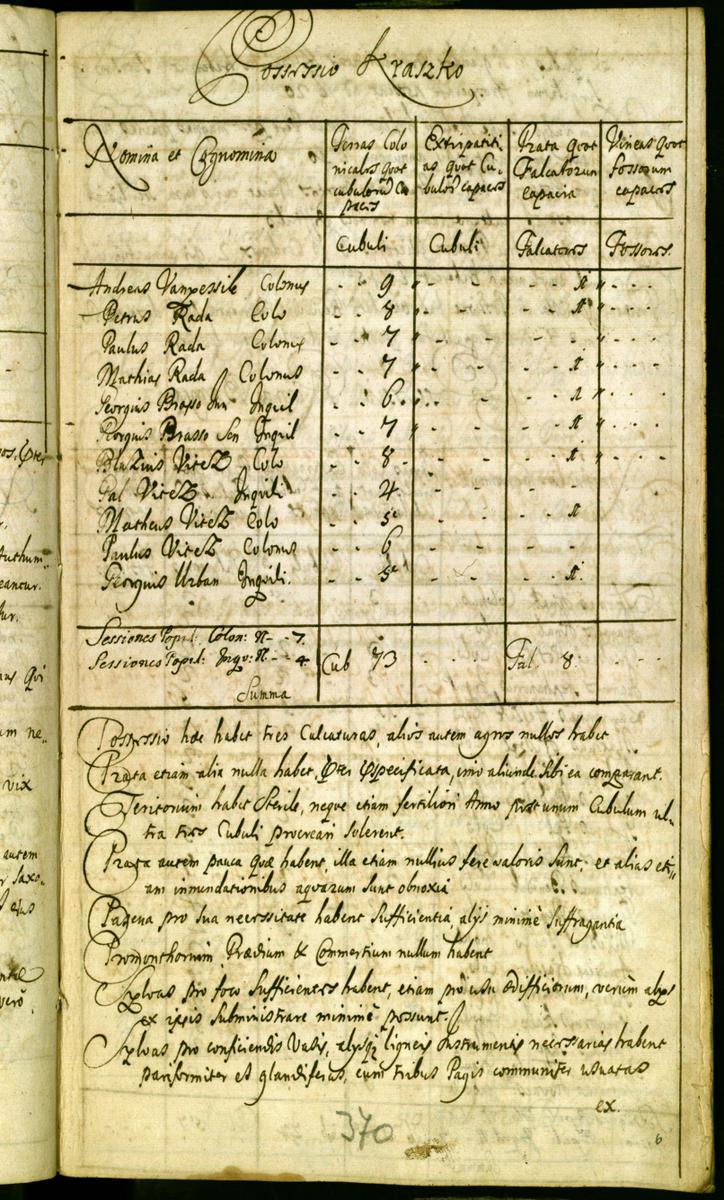 Possessio Kraszko
Nomina et Cognomina
Terras Colo
nicales quot
cubulorũ Ca
paces
Extirpatiti
as quot Cu
bulorũ capaces
Prata quot
Falcatorum
capacia
Vineas quot
fossorum
capaces
Cubuli Cubuli Falcatores Fossores.
Andreas Colonus - - 9
Petrus Rada Colo - - 8
Paulus Rada Colonus - - 7
Mathias Rada Colonus - - 7
Georgius Brasso Jun Inquil - - 6
Georgius Brasso Sen Inquil - - 7
Blazius Vitéz Colo - - 8
Pal Vitéz Inquili - - 4
Matheus Vitéz Colo - - 5
Paulus Vitéz Colonus - - 6
Georgius Urban Inquili. - - 5
Sessiones Popul: Colon: N - - 7.
Sessiones Popul: Inqu: N - - 4
Summa Cub 73 - - - Fal. 8. - - -
Possessio hæc habet tres Calcaturas, alios autem agros nullos habet
Prata etiam alia nulla habet, specificata, imo aliunde sibi ea comparant.
Teritorium habet Sterile, neque etiam fertiliori Anno unum Cubulum ul=
tra tres Cubuli procreari solerent.
Prata autem pauca quæ habent, illa etiam nullius fere valoris sunt, et alias eti=
am inundationibus aquarum sunt obnoxia
Pascua pro sua necessitate habent sufficientia, alys minimè suffragantia
Promonthorium, Prædium & Commertium nullum habent
Sylvas pro foco sufficientes habent, etiam pro usu ædifficiorum, verùm alys
ex ipsis subministrare minimè possunt.
Sylvas pro conficiendis Vasis, alysq ligneis Instrumentis necessarias habent
pariformiter et glandiferas, cum tribus Pagis communiter usuatas
ex.
370
6